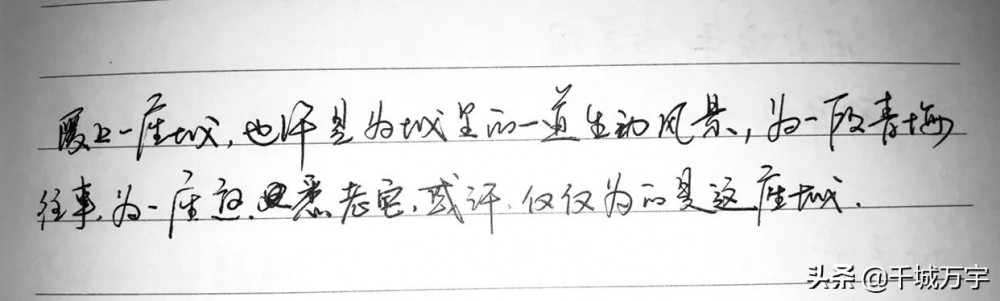 爱上一座城,也许是为城里的一道生动风景,为一段青梅
往事,为一座 悉老宅,或许,仅仅为的是这座城.
头条 @千城万宇